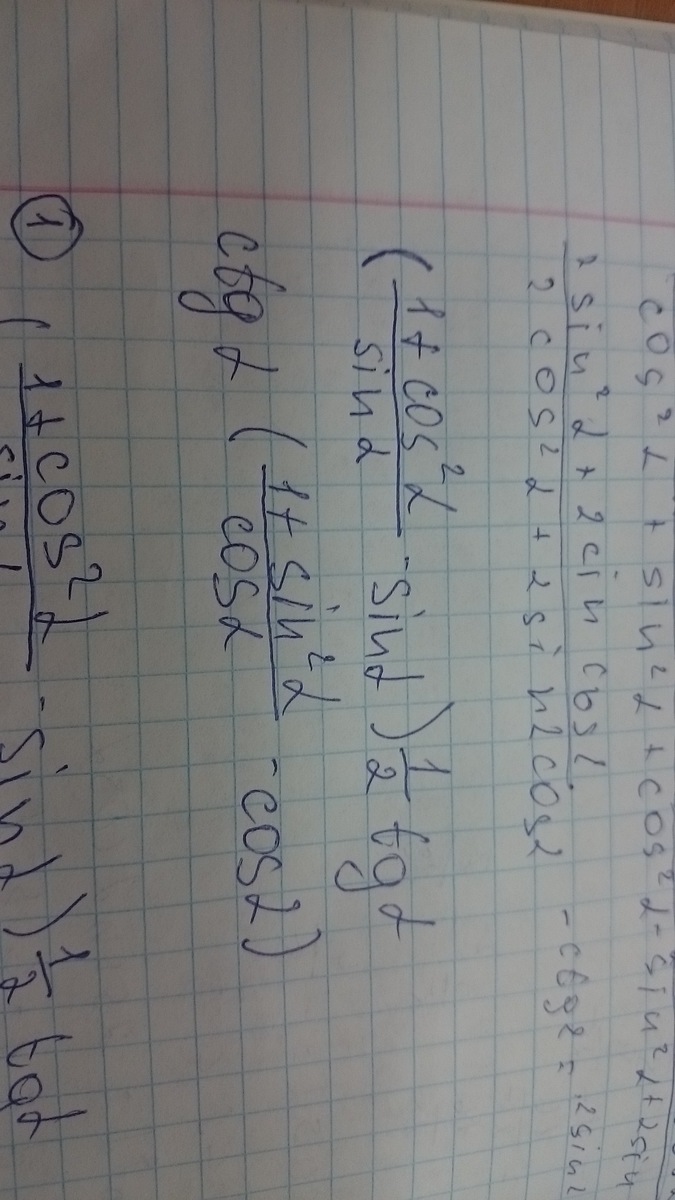 cos² α + sin² α + cos² α - sin² α + 2sin
2 sin² α + 2 cin cos α
2 cos² α + 2 sin α cos α
- ctg α = 2 sin α
( 1 + cos² α
sin α
- sin α ) 1/2 tg α
ctg α ( 1 + sin² α
cos α
- cos α )
① ( 1 + cos² α
sin α
- sin α ) 1/2 tg α